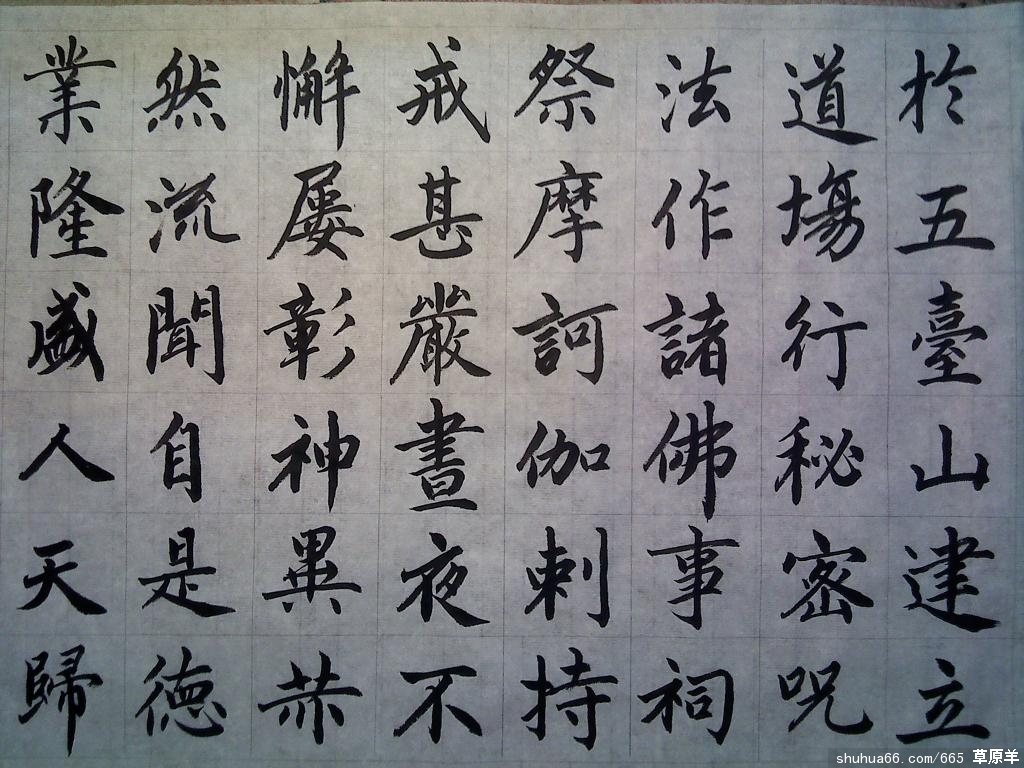 於五臺山建立
道場行秘密呪
法作諸佛事祠
祭摩訶伽刺持
戒甚嚴晝夜不
懈屢彰神異赫
然流聞自是德
業隆盛人天歸
shuhua66.com/665 草原羊